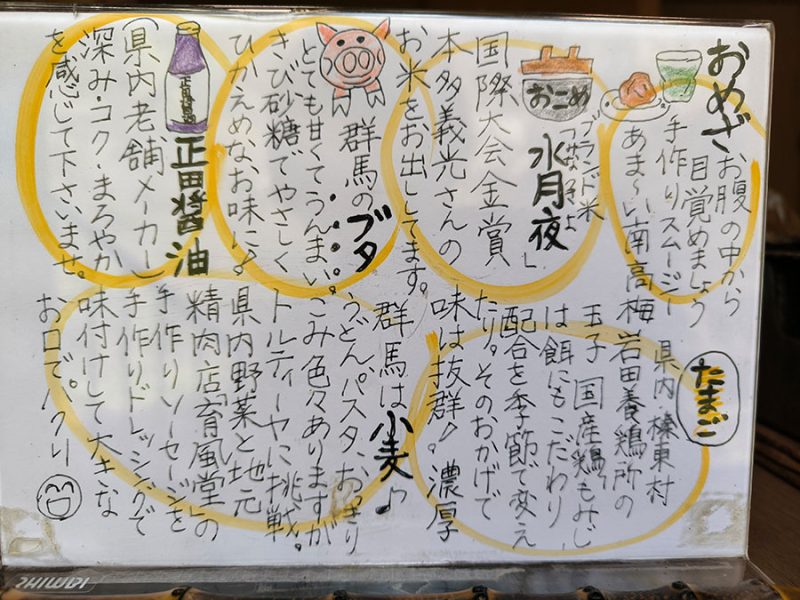 おめざ
お腹の中から
目覚めましょう
手作りスムージー
あま～い南高梅
おこめ
ブランド米
水月夜」
国際大会金賞
本多義光さんの
お米をお出ししてます。
群馬のブタ
とても甘くてうんまい。
きび砂糖でやさしく
ひかえめなお味に♪
正田醤油
正田醤油
(県内老舗メーカー)
深み・コク・まろやか
を感じて下さいませ。
たまご
県内 榛東村
岩田養鶏所の
玉子 国産鶏もみじ
は餌にもこだわり、
配合を季節で変え
たり。そのおかげで
味は抜群!濃厚
群馬は小麦♪
うどん、パスタ、おっきり
こみ色々ありますが
トルティーヤに挑戦。
県内野菜と地元
精肉店「育風堂」の
手作りソーセージを
手作りドレッシングで
味付けして大きな
お口で。パクリ